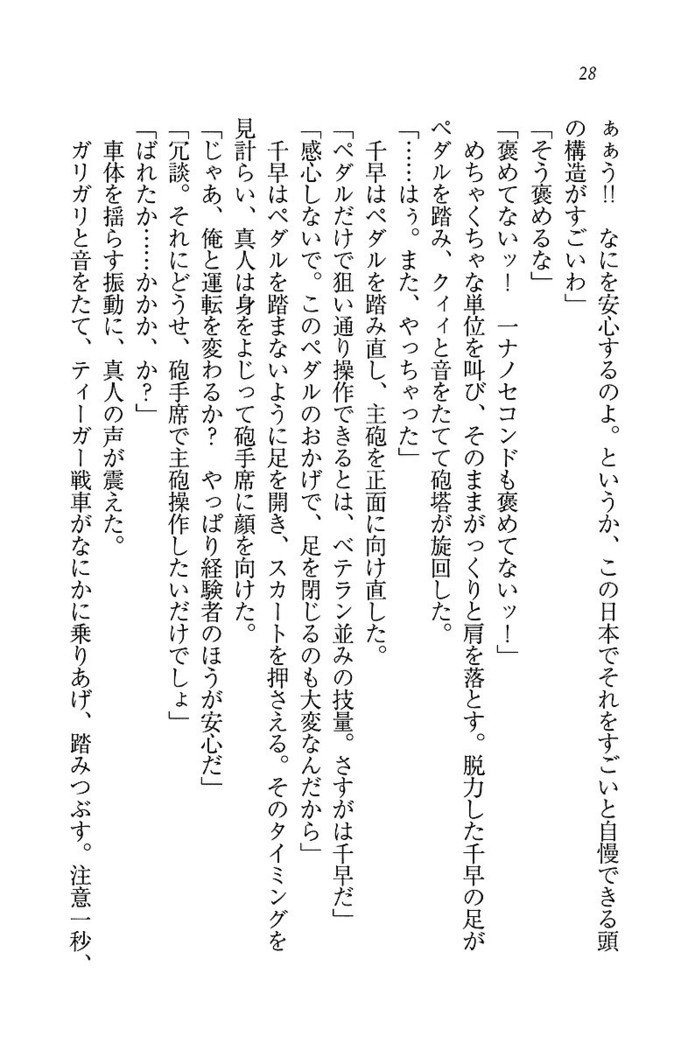 28
ぁぁう!!　なにを安心するのよ。というか、この日本でそれをすごいと自慢できる頭
の構造がすごいわ」
「そう褒めるな」
「褒めてないッ！　一ナノセコンドも褒めてないッ！」
　めちゃくちゃな単位を叫び、そのままがっくりと肩を落とす。脱力した千早の足が
ペダルを踏み、クィィと音をたてて砲塔が旋回した。
「……はぅ。また、やっちゃった」
　千早はペダルを踏み直し、主砲を正面に向け直した。
「ペダルだけで狙い通り操作できるとは、ベテラン並みの技量。さすがは千早だ」
「感心しないで。このペダルのおかげで、足を閉じるのも大変なんだから」
　千早はペダルを踏まないように足を開き、スカートを押さえる。そのタイミングを
見計らい、真人は身をよじって砲手席に顔を向けた。
「じゃあ、俺と運転を変わるか？　やっぱり経験者のほうが安心だ」
「冗談。それにどうせ、砲手席で主砲操作したいだけでしょ」
「ばれたか……かかか、か？」
　車体を揺らす振動に、真人の声が震えた。
　ガリガリと音をたて、ティーガー戦車がなにかに乗りあげ、踏みつぶす。注意一秒、